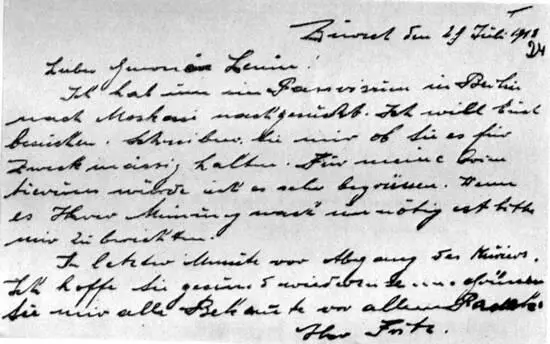 Zürich den 29 Juli 1918
Lieber Genosse Lenin!
Ich hab um ein Passvisum in Berlin
nach Moskau nachgesucht. Ich will Euch
besuchen. Schreiben Sie mir ob Sie es für
zweckmässig halten. Für meine Orien
tierung würde ich es sehr begrüssen. Wenn
es Ihrer Meinung nach unnötig ist bitte
mir zu berichten.
In letzter Minute vor Abgang des Kuriers.
Ich hoffe Sie gesund wieder Grüssen
Sie mir alle Bekannte vor allem Radek.
Ihr Fritz.